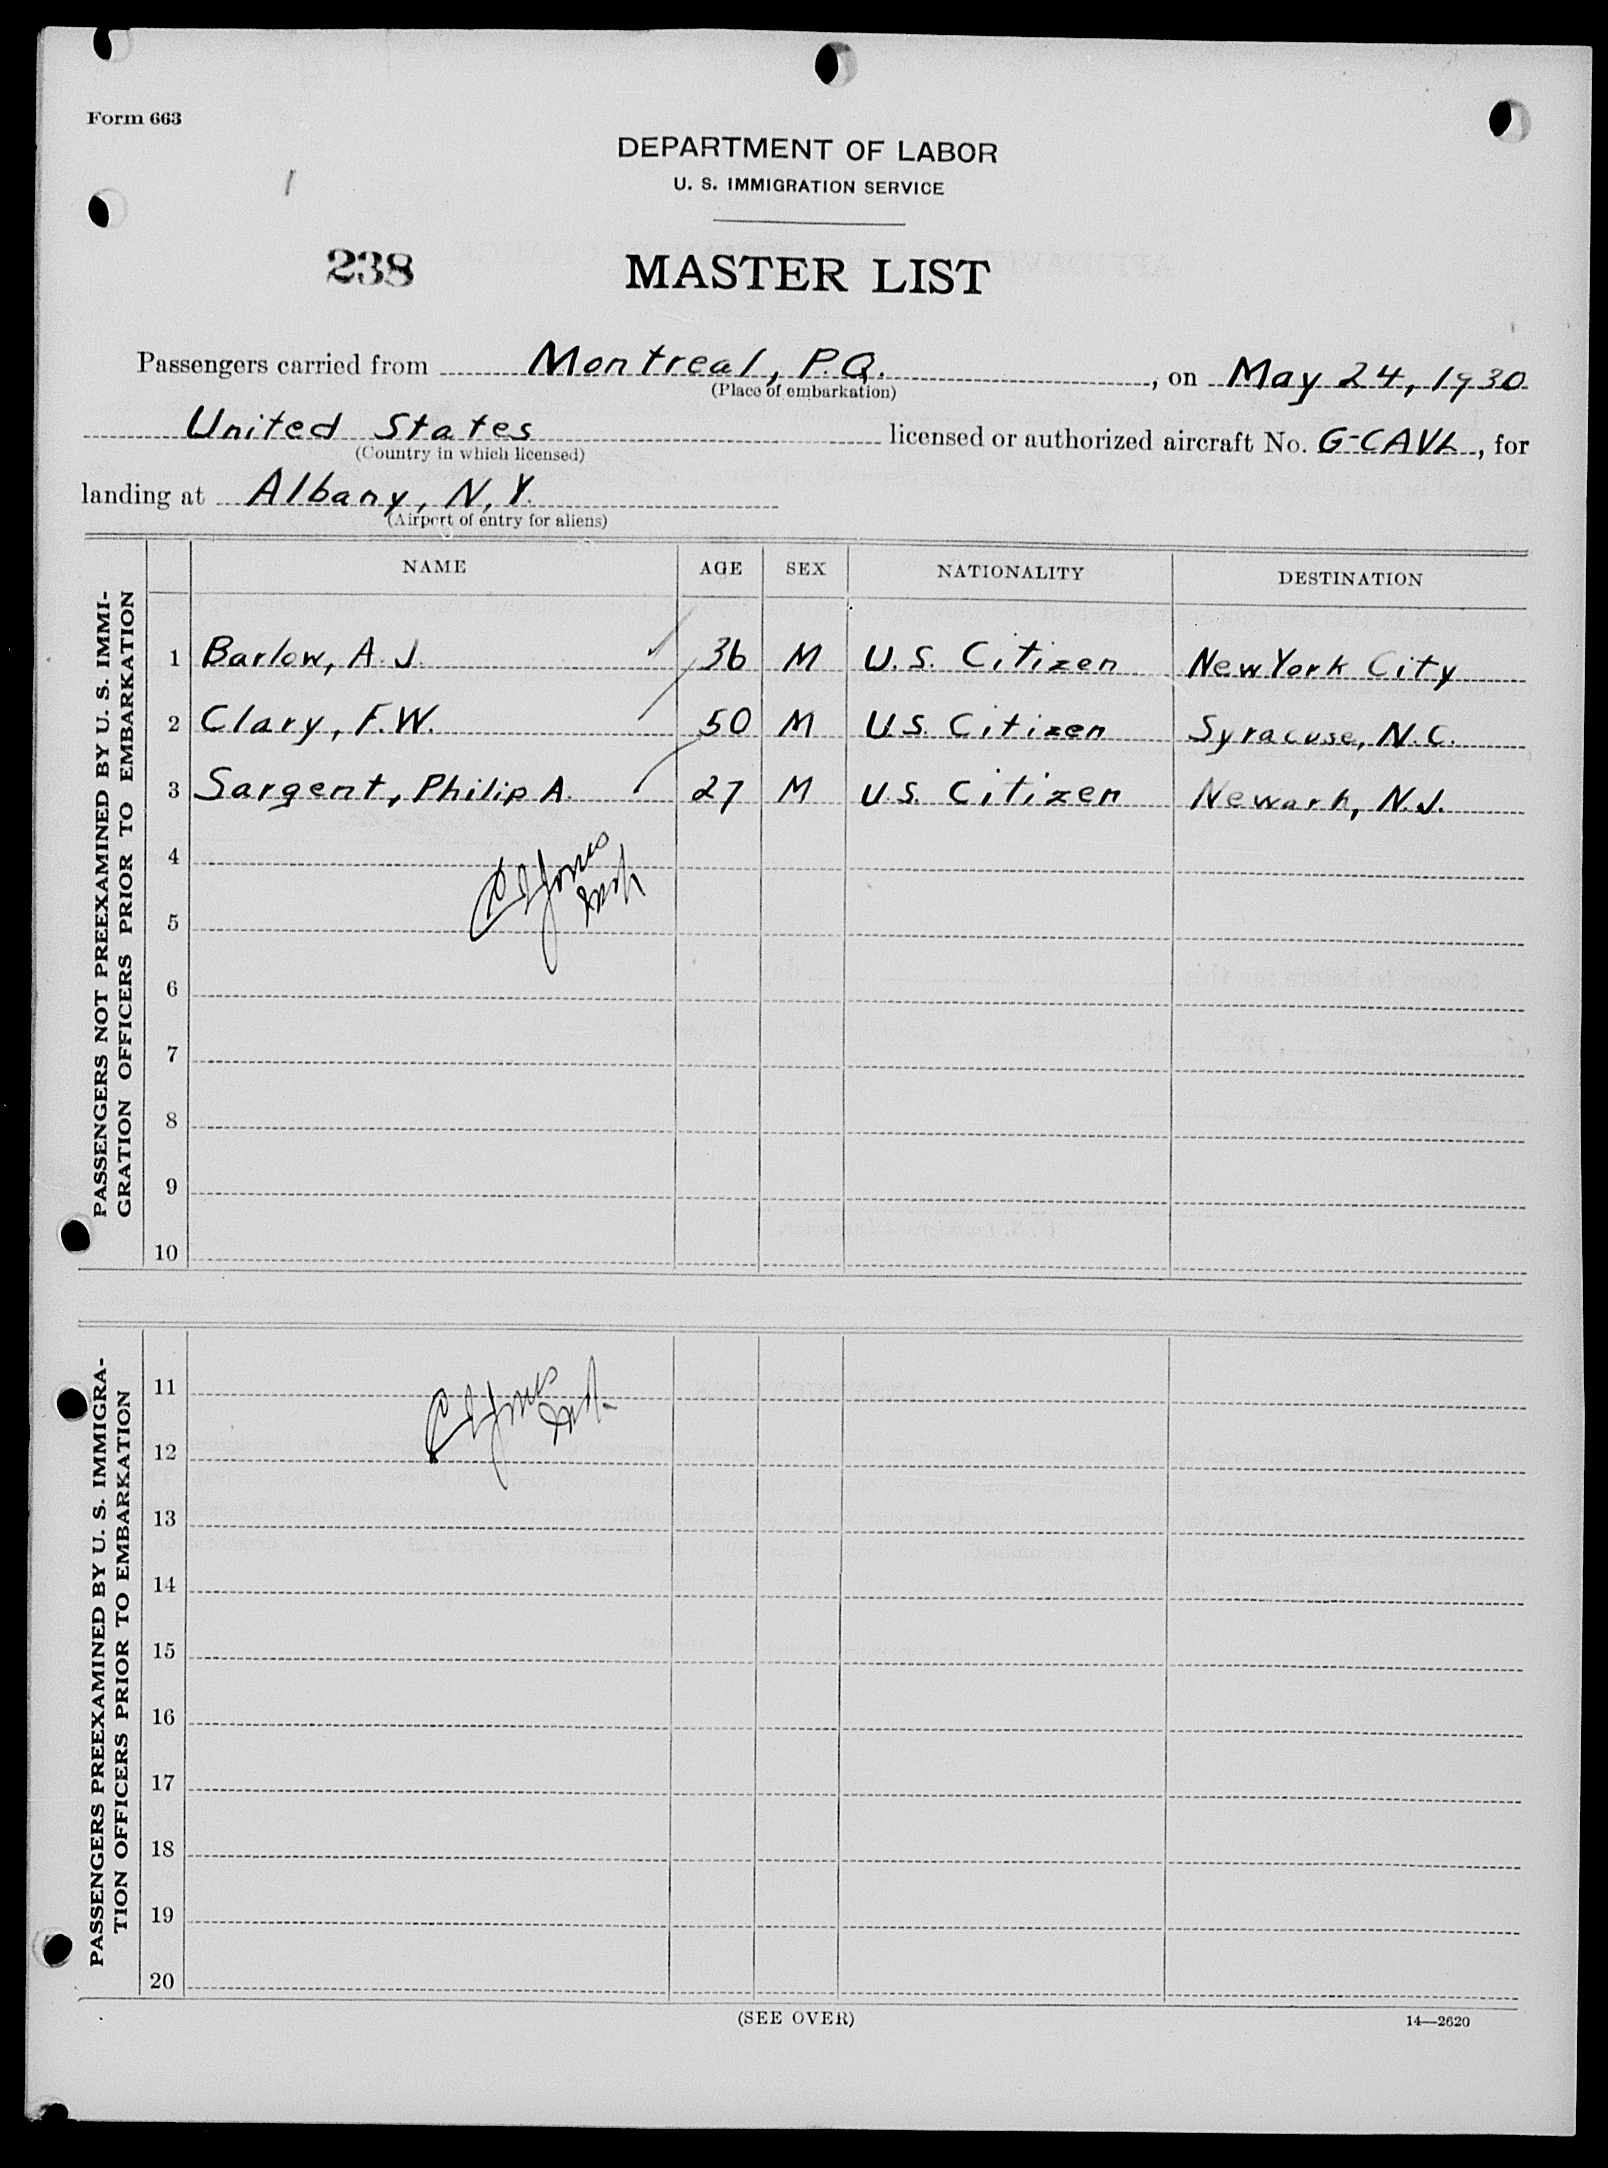 Form 663
DEPARTMENT OF LABOR
U. S. IMMIGRATION SERVICE
238
MASTER LIST
Passengers carried from Montreal, P.Q., on May 24, 1930
(Place of embarkation)
United States licensed or authorized aircraft No. G-CAVL, for
(Country in which licensed)
landing at Albany, N.Y.
(Airport of entry for aliens)
NAME AGE SEX NATIONALITY DESTINATION
PASSENGERS NOT PREEXAMINED BY U. S. IMMI-
GRATION OFFICERS PRIOR TO EMBARKATION
1 Barlow, A. J. 36 M U.S. Citizen New York City
2 Clary, F.W. 50 M U.S. Citizen Syracuse, N.C.
3 Sargent, Philip A. 27 M U.S. Citizen Newark, N.J.
4
Jones
5
6
7
8
9
10
PASSENGERS PREEXAMINED BY U. S. IMMIGRA-
TION OFFICERS PRIOR TO EMBARKATION
11
Jones
12
13
14
15
16
17
18
19
20
(SEE OVER)
14—2620